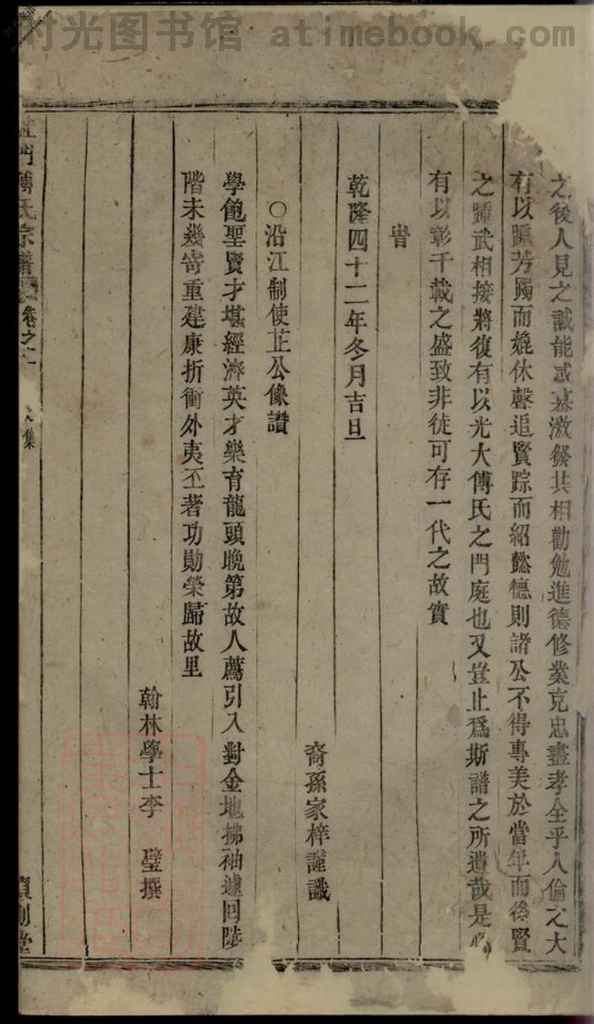 时光图书馆 atimebook.com
之後人見之誠能感慕激發共相勸勉進德修業克忠盡孝全乎人倫之大
有以躡芳躅而媲休聲追賢踪而紹懿德則諸公不得專美於當年而後賢
之踵武相接將復有以光大傅氏之門庭也又豈止爲斯譜之所遺哉是
有以彰千載之盛致非徒可存一代之故實
旹
乾隆四十二年冬月吉旦
裔孫家梓謹識
○沿江制使止公像讚
學飽聖賢才堪經濟英才樂育龍頭晚第故人薦引入對金地拂袖遽回陸
階未幾寄重建康折衝外夷丕著功勛榮歸故里
翰林學士李 璧撰
門傅氏宗譜 卷之一